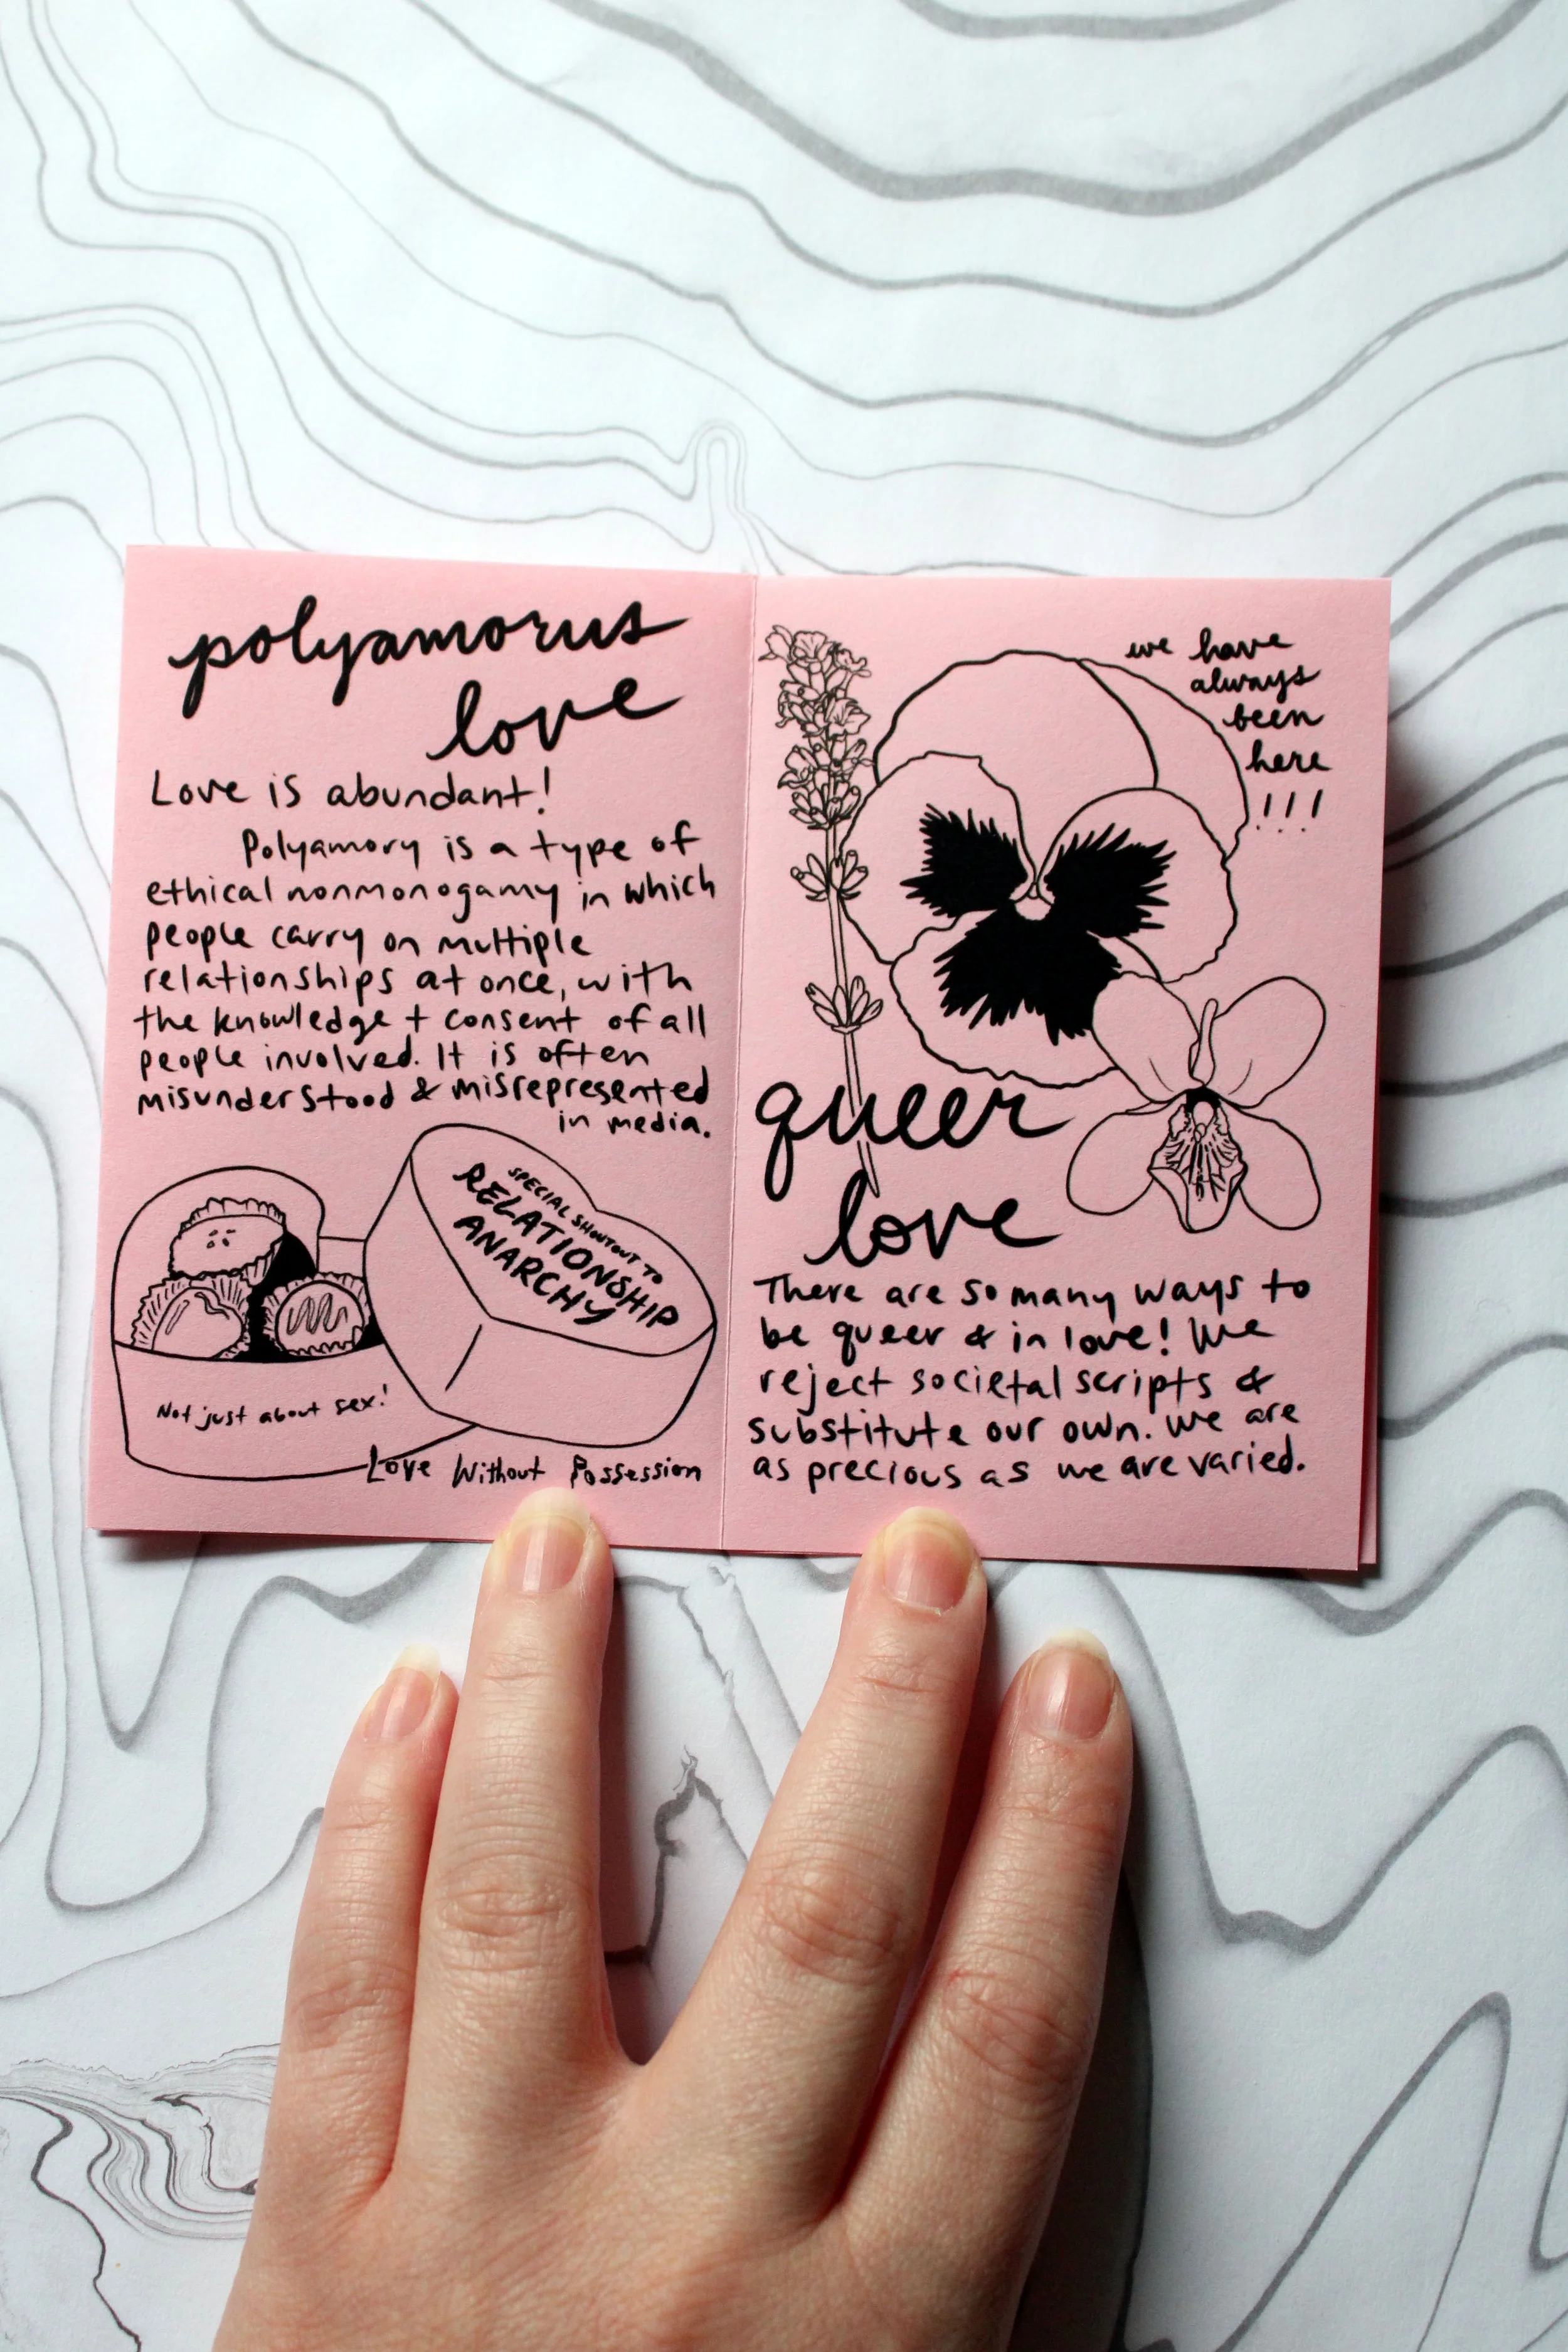 polyamorus
love
Love is abundant!
Polyamory is a type of
ethical nonmonogamy in which
people carry on multiple
relationships at once, with
the knowledge + consent of all
people involved. It is often
misunderstood & misrepresented
in media.
SPECIAL SHOUTOUT TO
RELATIONSHIP
ANARCHY
Not just about sex!
Love Without Possession
we have
always
been
here
!!!
queer
love
There are so many ways to
be queer & in love! We
reject societal scripts &
substitute our own. We are
as precious as we are varied.